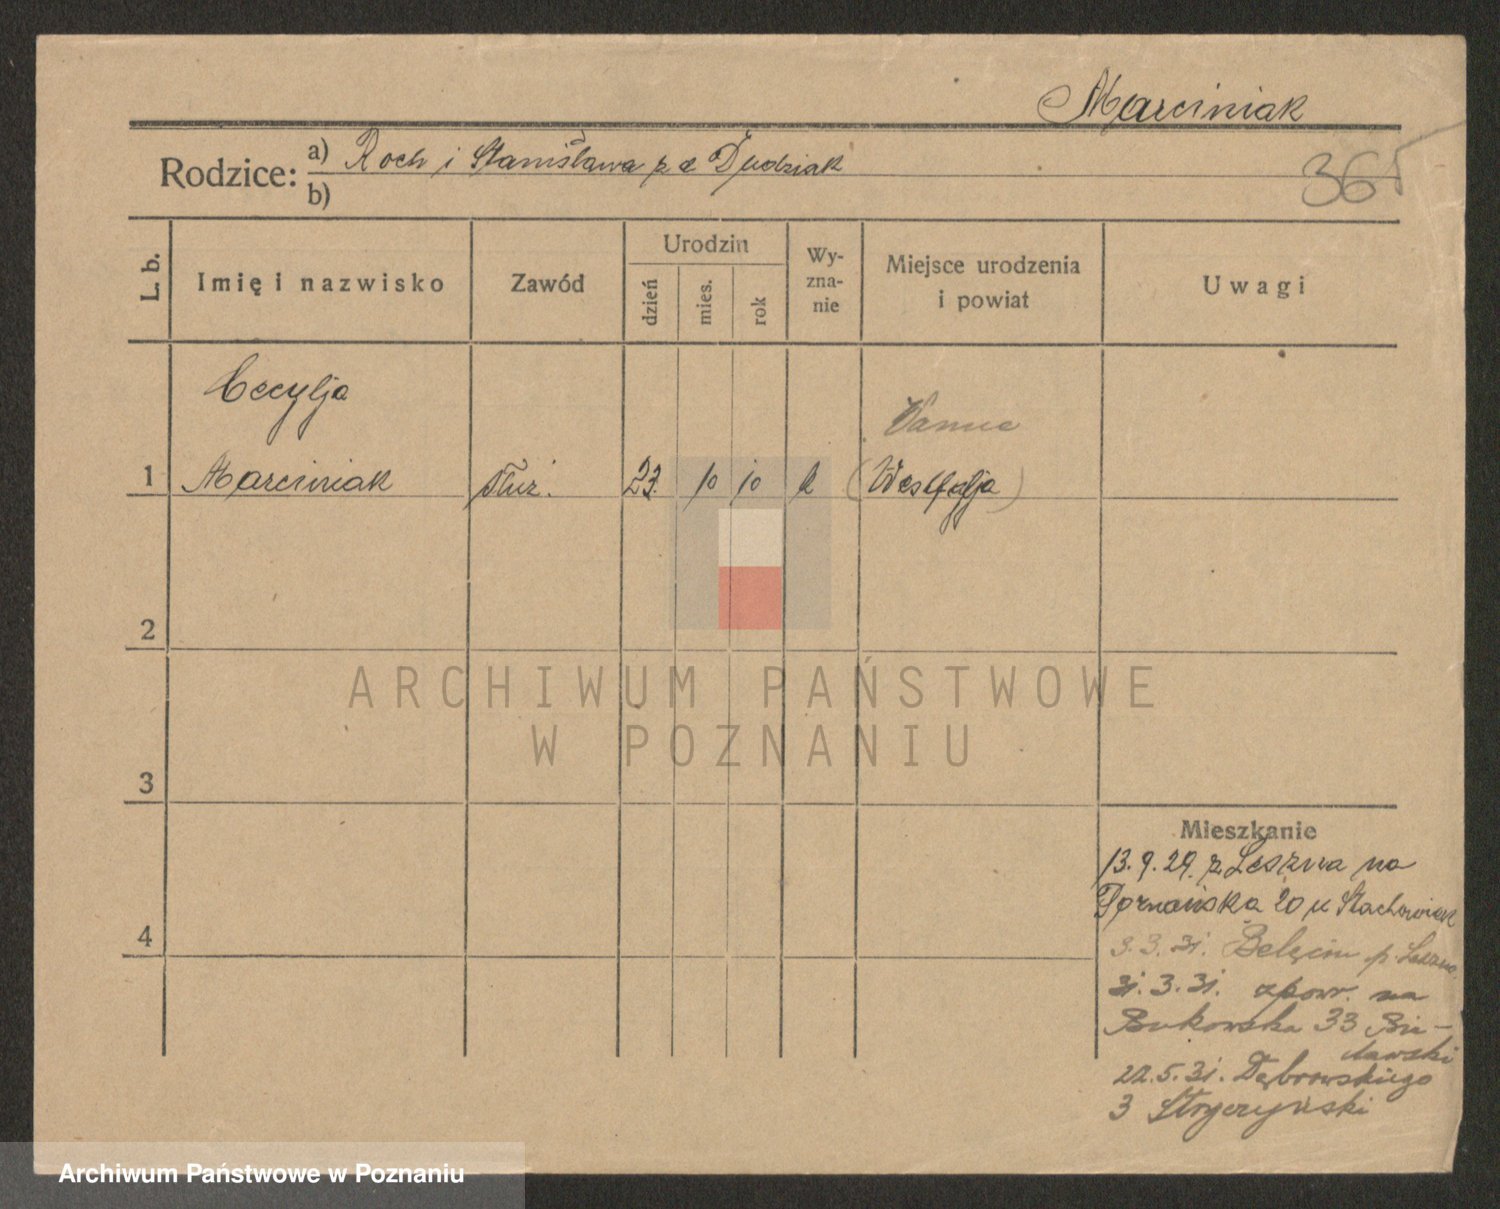 Marciniak
365
Rodzice: a) Roch i Stanisława z d Dudziak
b)
L. b.
Imię i nazwisko
Zawód
Urodzin
dzień
mies.
rok
Wy-
zna-
nie
Miejsce urodzenia
i powiat
Uwagi
Cecylja
Wanne
1 Marciniak służ. 23. 10 10 k (Westfalja)
2
3
4
ARCHIWUM PAŃSTWOWE
W POZNANIU
Mieszkanie
13.9.29. z Leszna na
Poznańska 20 u Stachowiak
3.3.31. Belęcin p. Leszno.
31.3.31. zpowr. na
Bukowska 33
22.5.31. Dąbrowskiego
3
Archiwum Państwowe w Poznaniu